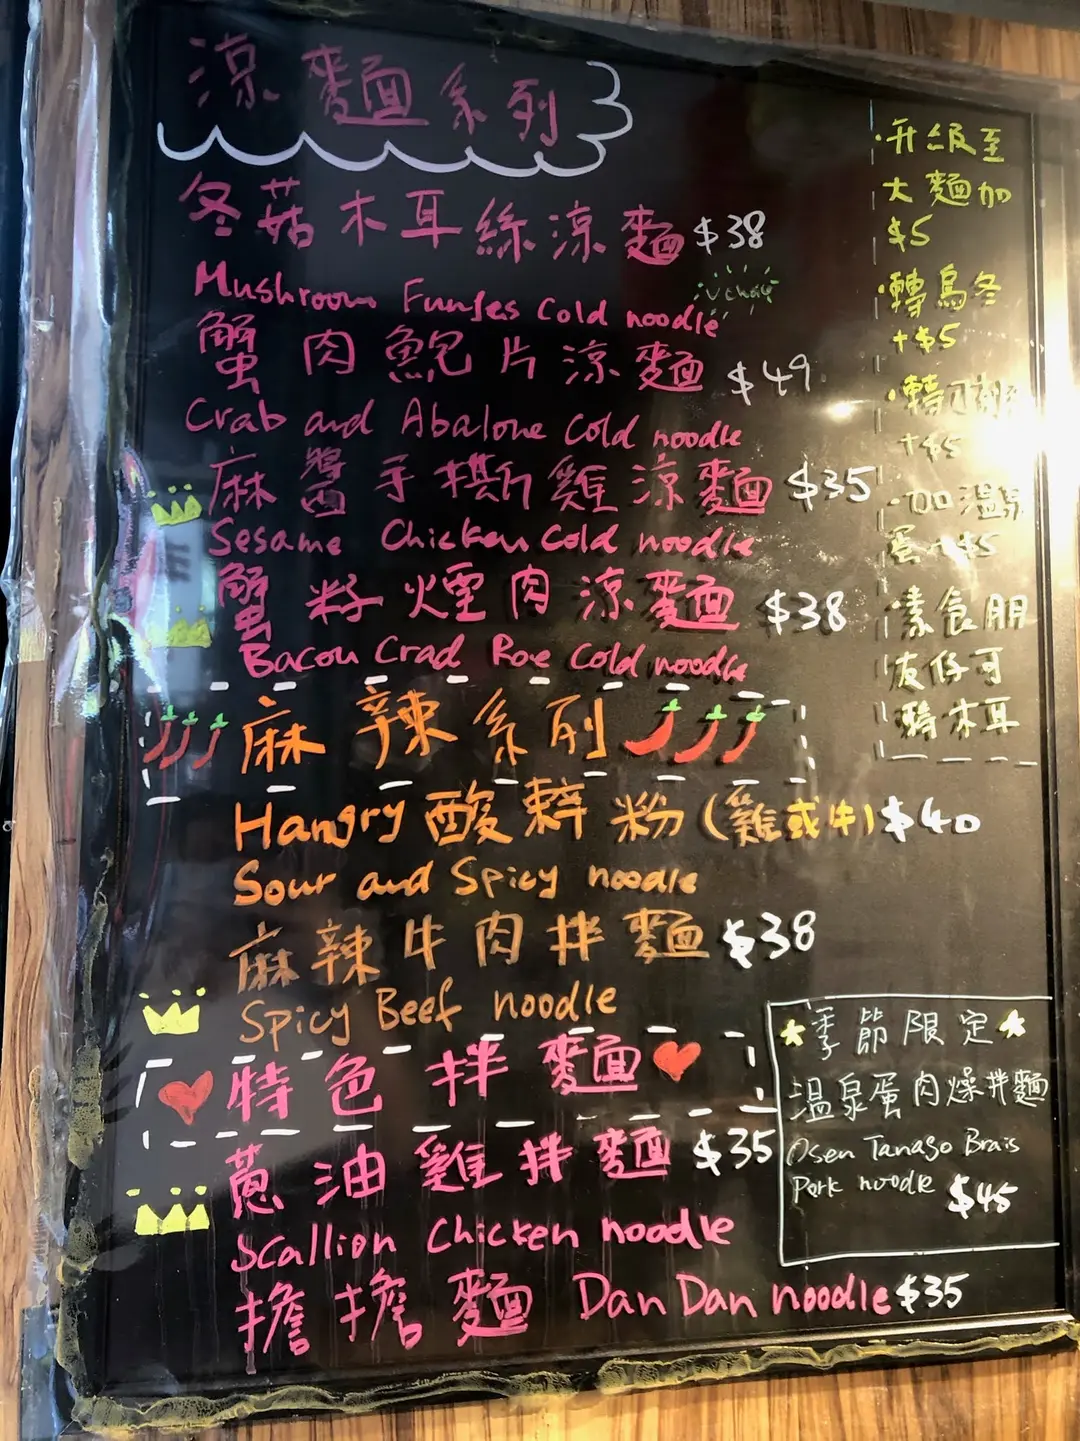 涼麵系列
冬菇木耳絲涼麵 $38
Mushroom Funfes Cold noodle
蟹肉鮑片涼麵 $49
Crab and Abalone Cold noodle
麻醬手撕雞涼麵 $35
Sesame Chicken Cold noodle
蟹籽煙肉涼麵 $38
Bacon Crad Roe Cold noodle
麻辣系列
Hangry 酸辣粉(雞或牛) $40
Sour and Spicy noodle
麻辣牛肉拌麵 $38
Spicy Beef noodle
特色拌麵
蔥油雞拌麵 $35
Scallion Chicken noodle
擔擔麵 Dan Dan noodle $35
·升級至
大麵加
$5
·轉烏冬
+$5
·轉刀削
+$5
加溫泉
蛋+$5
素食朋
友仔可
轉木耳
季節限定
溫泉蛋肉燥拌麵
Osen Tanago Brais
Pork noodle $45